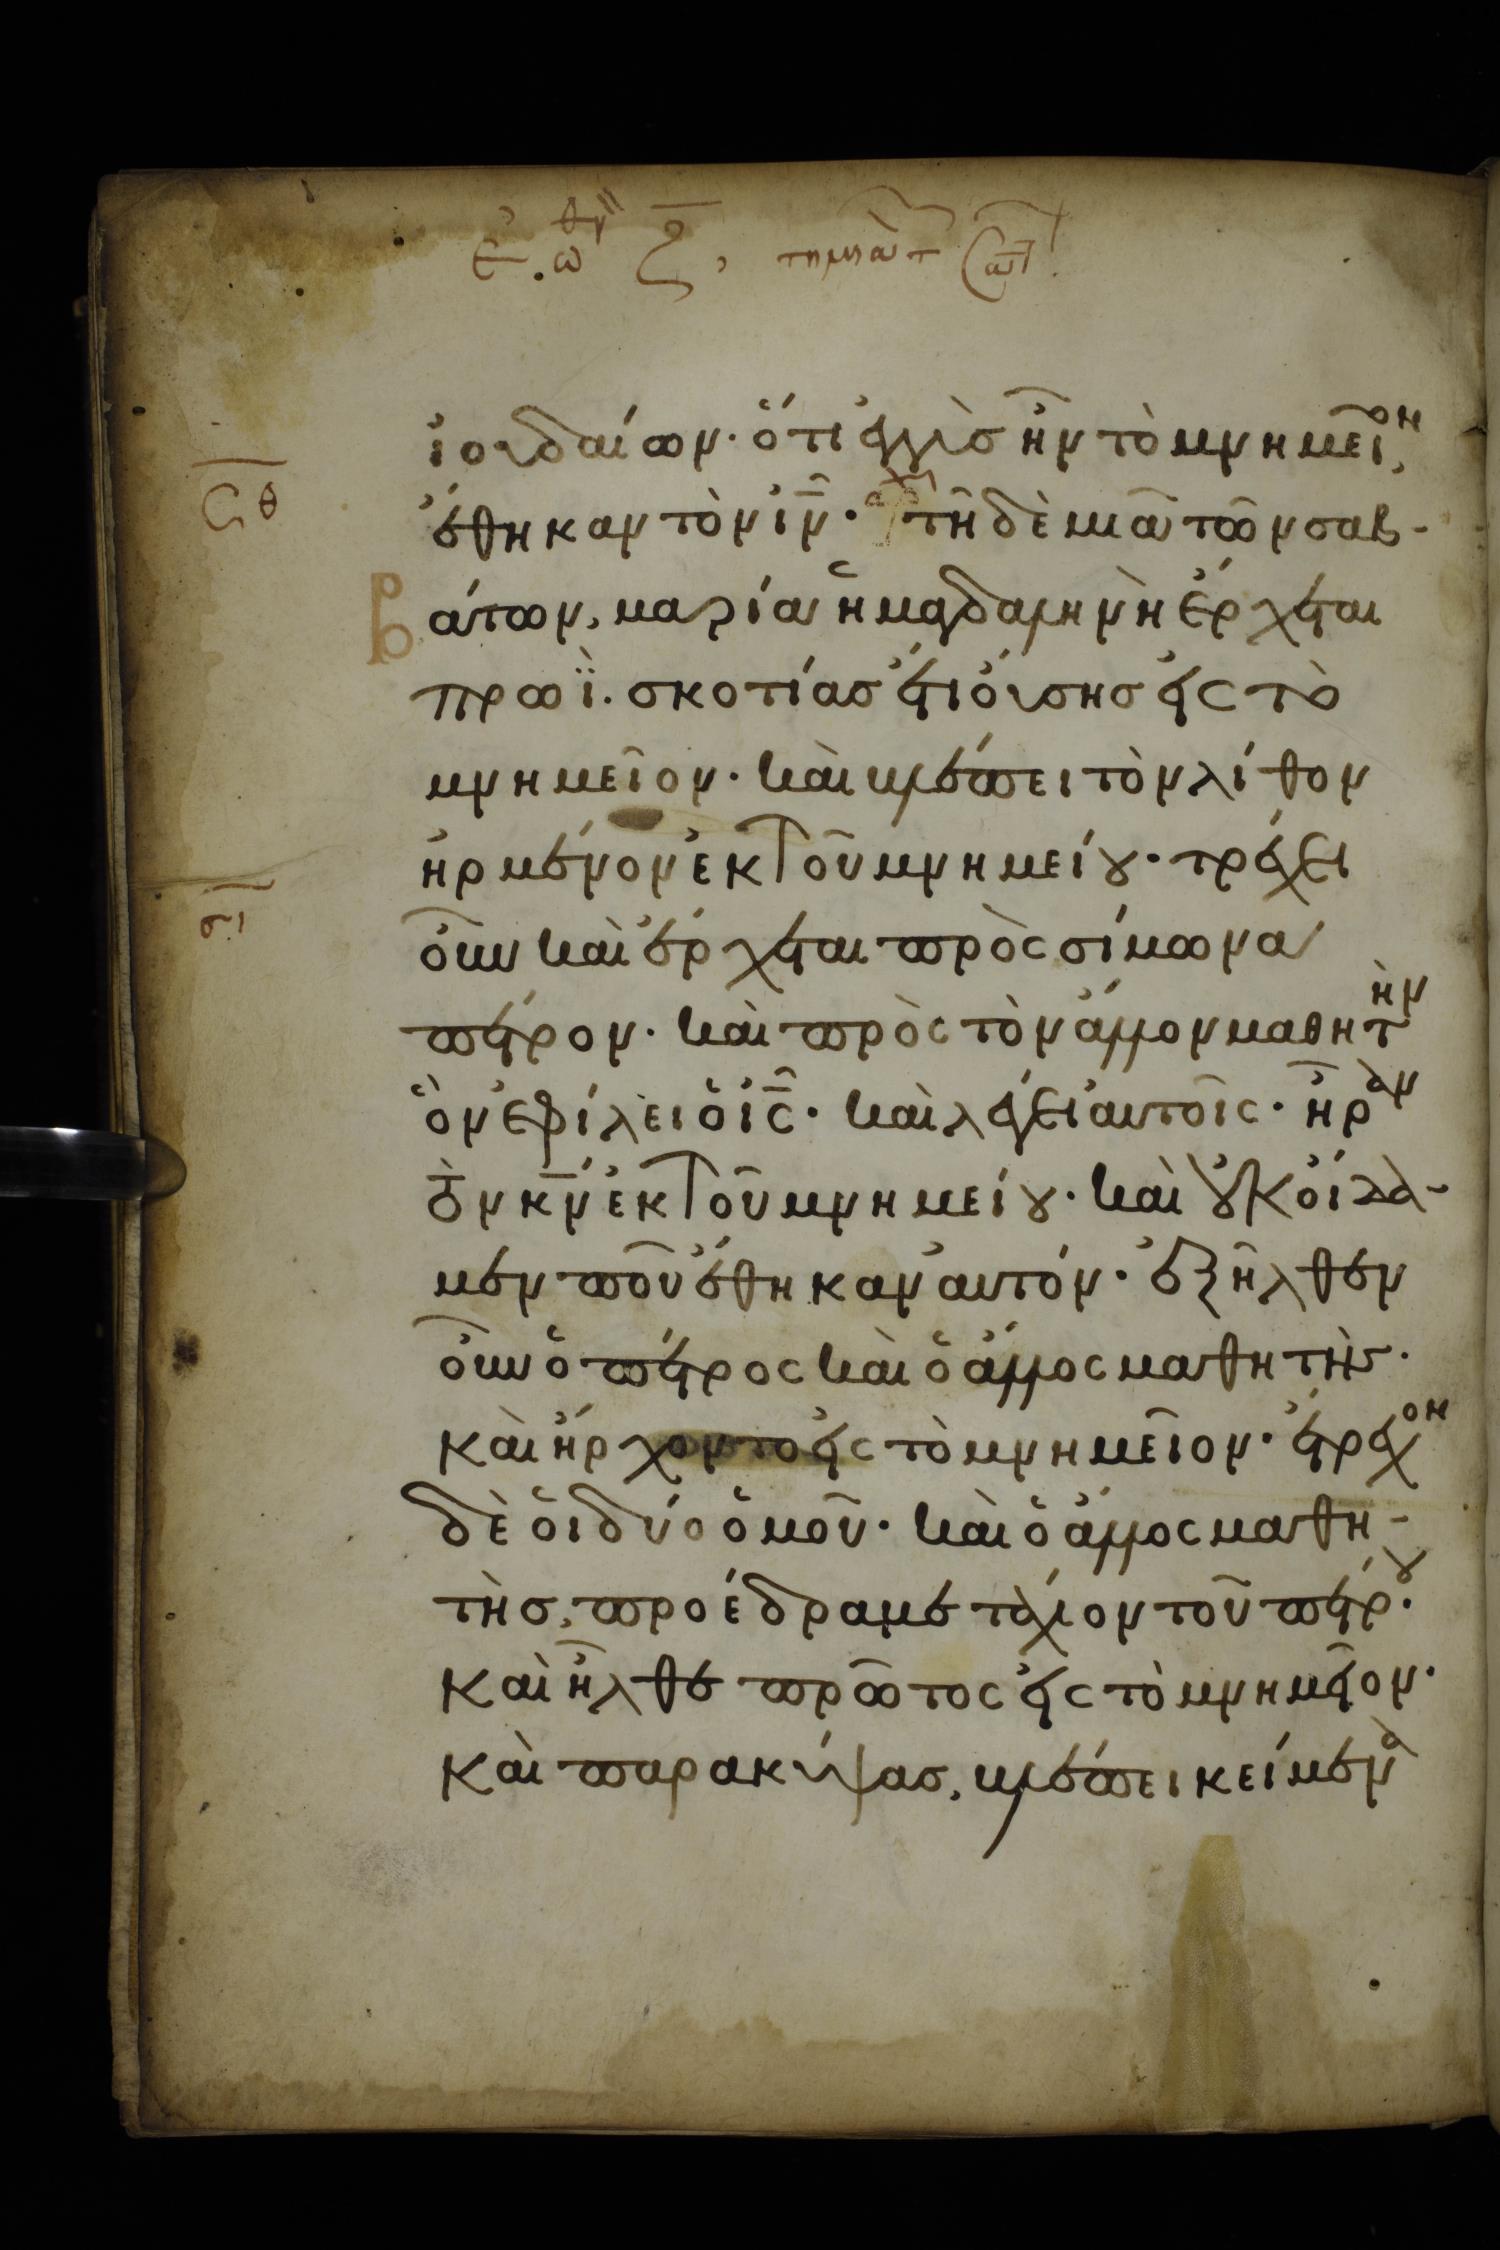 ἰουδαίων· ὅτι ἐγγὺσ ἦν τὸ μνημεῖον,
ἔθηκαν τὸν ἰν̅· τῆ δὲ μιᾶ τῶν σαβ-
άτων, μαρία ἡ μαγδαληνὴ ἔρχεται
πρωῒ. σκοτίασ ἔτι οὔσησ εἰς τὸ
μνημεῖον· καὶ βλέπει τὸν λίθον
ἠρμένον ἐκ τοῦ μνημείου· τρέχει
οὖν καὶ ἔρχεται πρὸς σίμωνα
πέτρον· καὶ πρὸς τὸν ἄλλον μαθητὴν
ὃν ἐφίλει ὁ ἰς̅· καὶ λέγει αυτοῖς· ἦραν
τὸν κν̅ ἐκ τοῦ μνημείου· καὶ οὐκ οἴδα-
μεν ποῦ ἔθηκαν αυτόν· ἐξῆλθεν
οὖν ὁ πέτρος καὶ ὁ ἄλλος μαθητὴς·
καὶ ἤρχοντο εἰς τὸ μνημεῖον· ἔτρεχον
δὲ ὁι δύο ὁμοῦ· καὶ ὁ ἄλλος μαθη-
τὴσ, προέδραμε τάχιον τοῦ πέτρου·
καὶ ἦλθε πρῶτος εἰς τὸ μνημεῖον·
καὶ παρακύψασ, βλέπει κείμενα